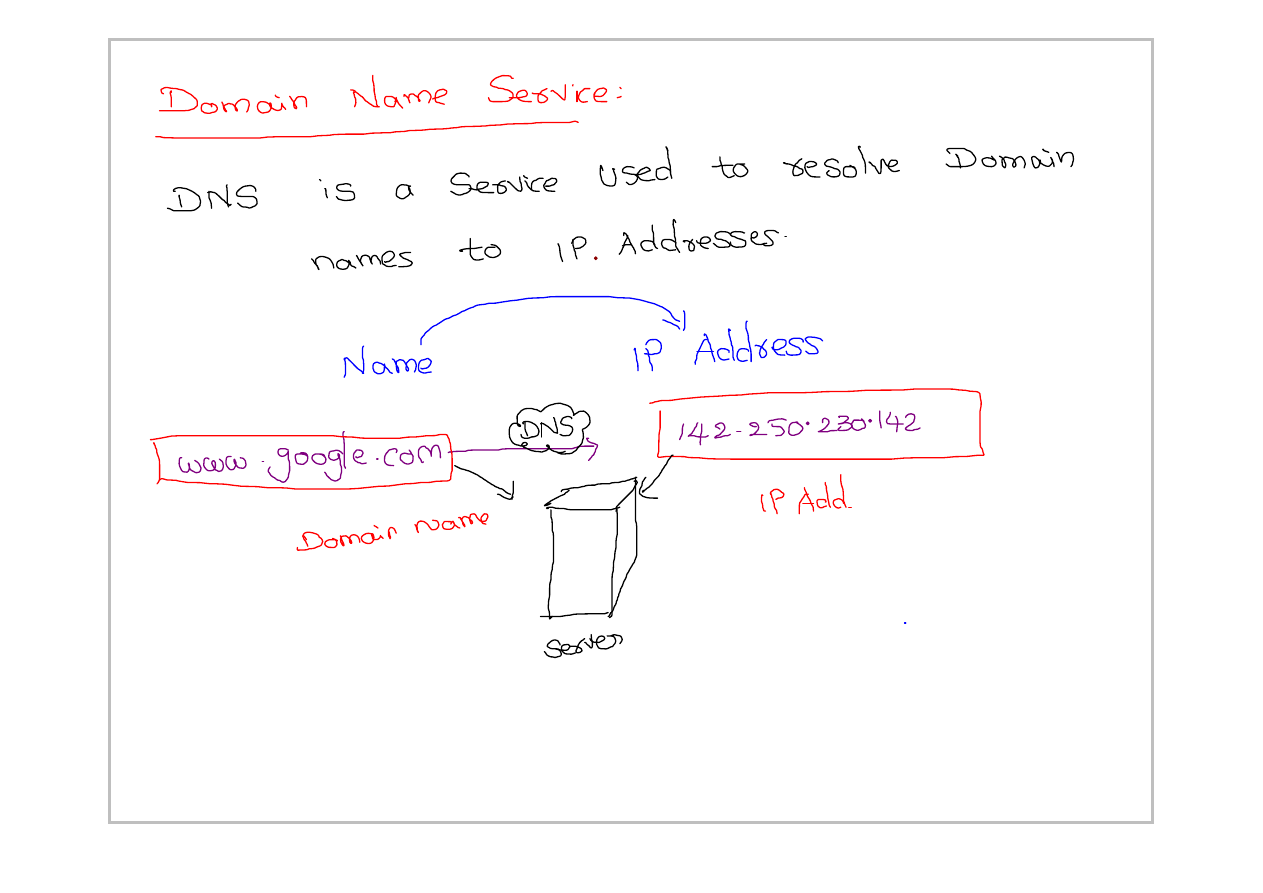 Domain Name Service:
DNS is a Service used to resolve Domain
names to IP. Addresses.
Name IP Address
www.google.com DNS 142-250.230.142
Domain Name IP Add.
Server